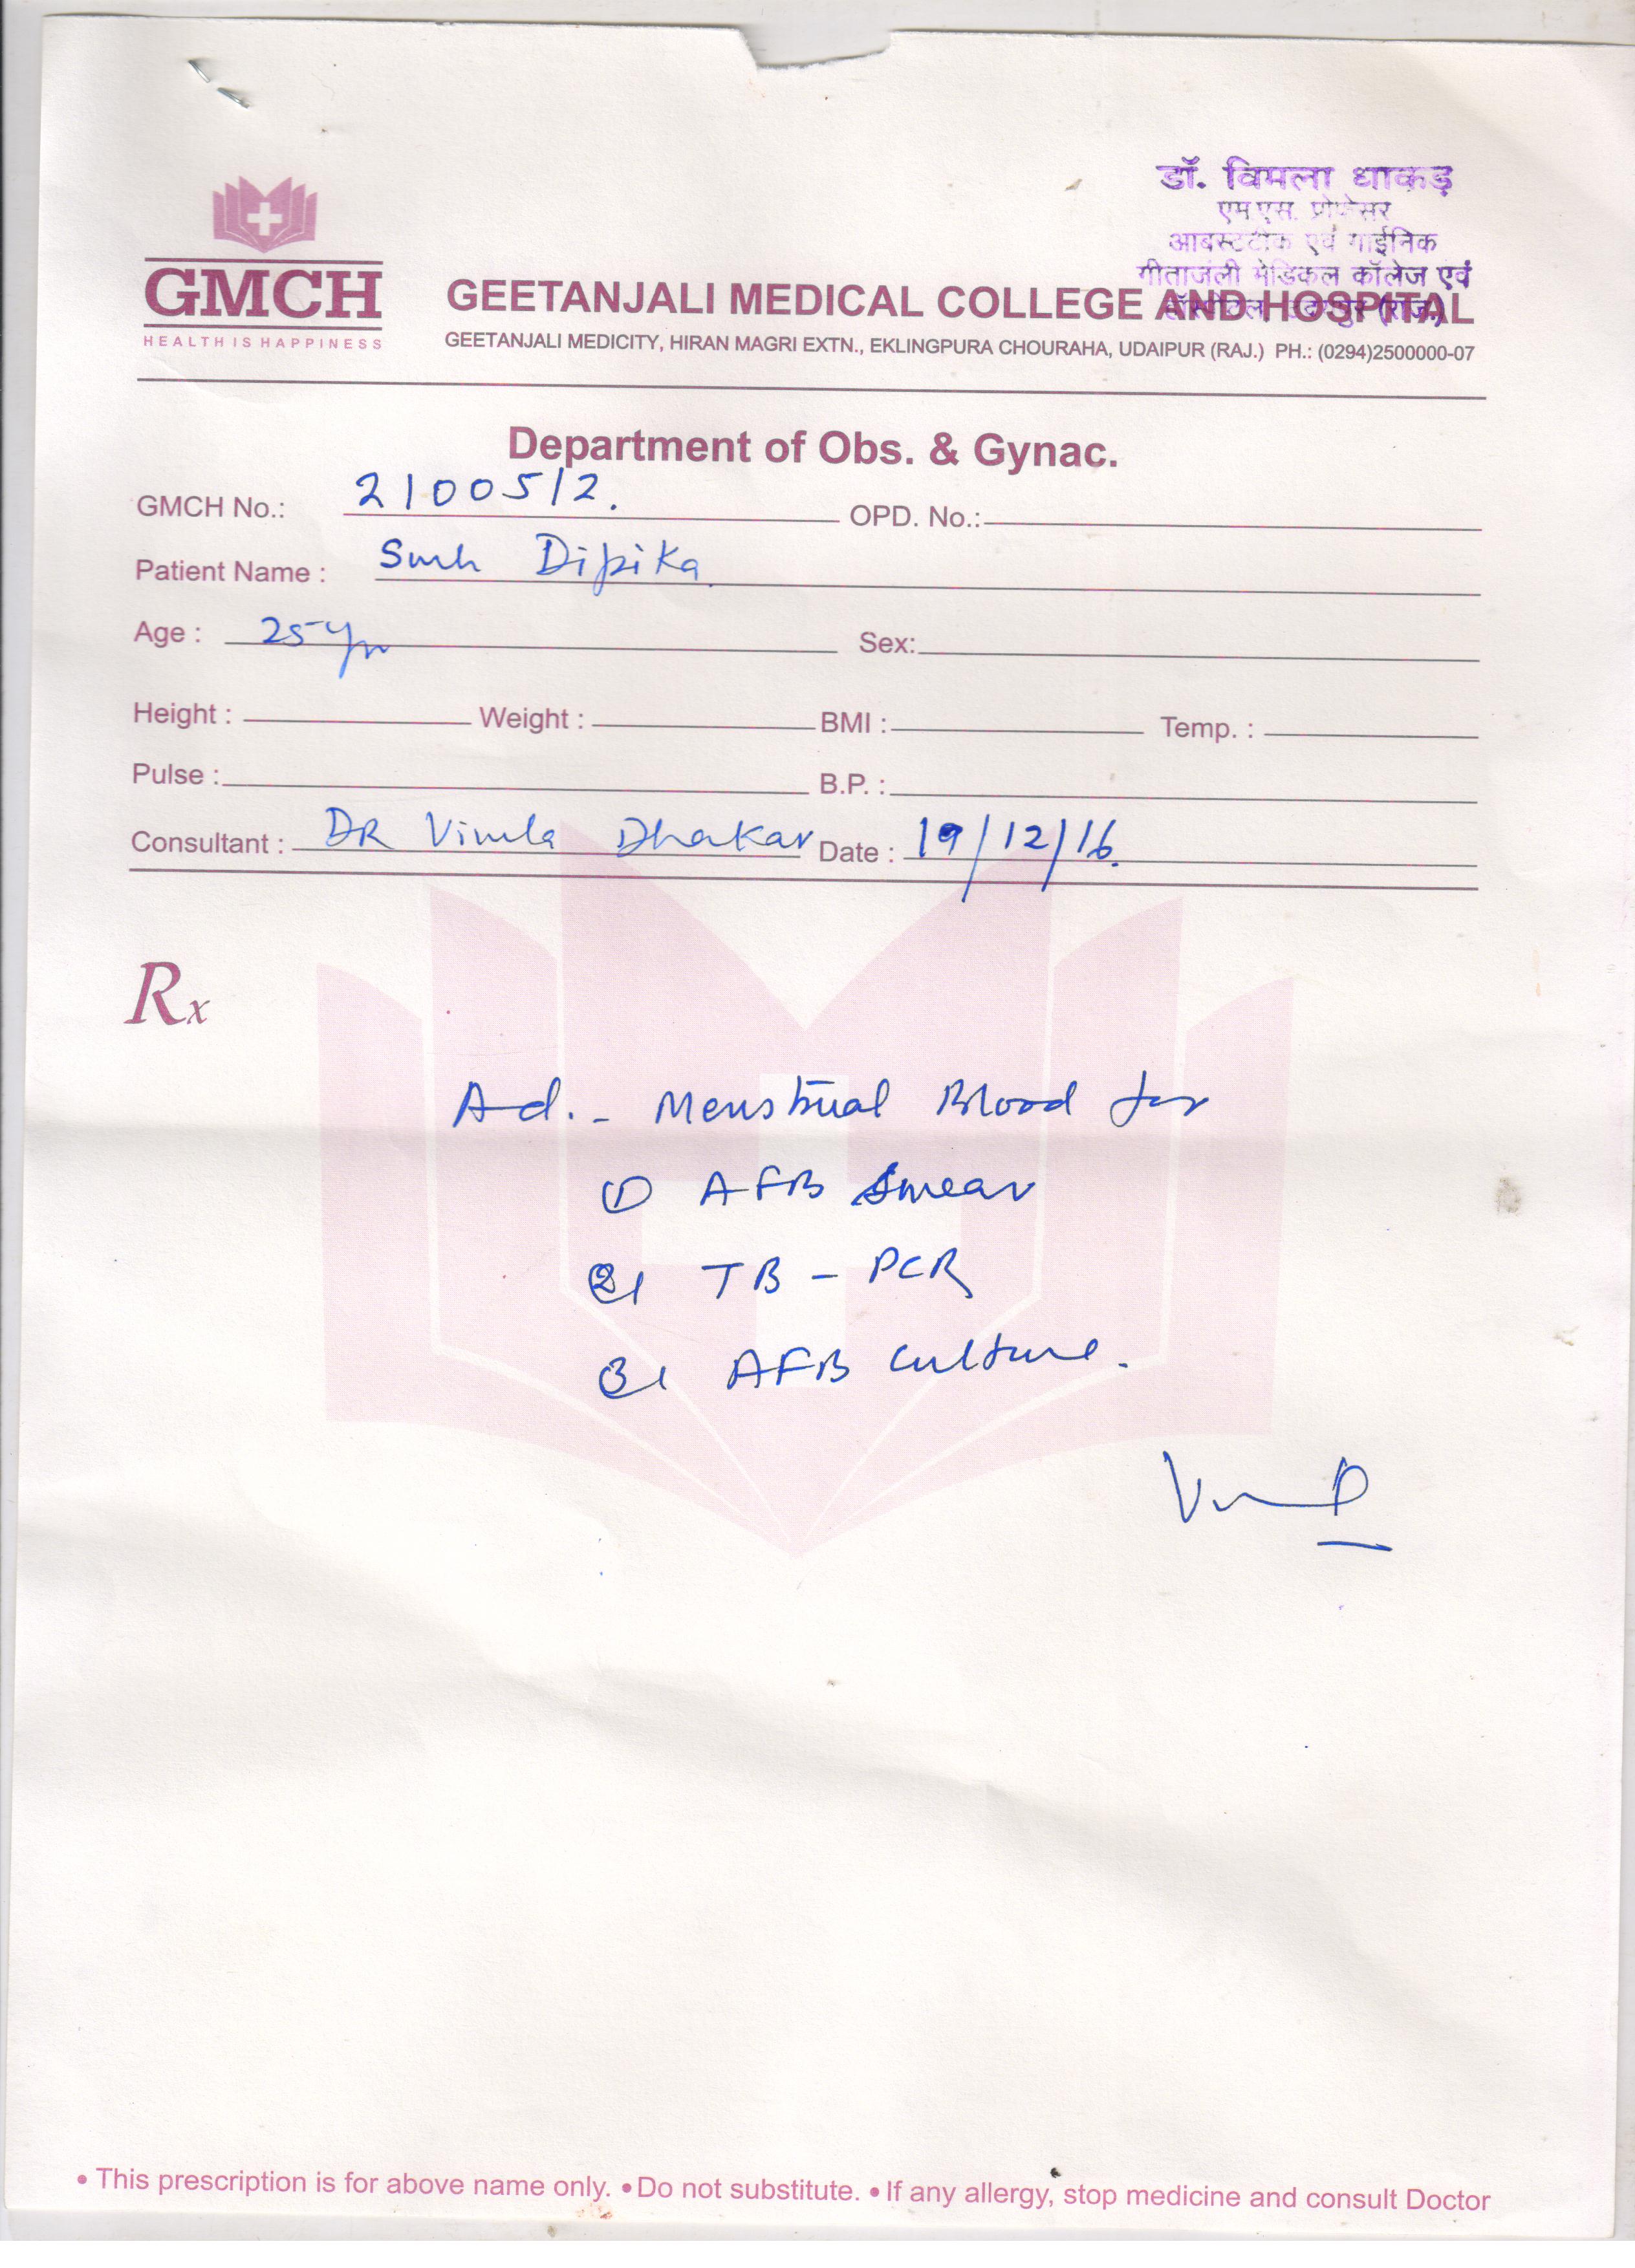 डॉ. विमला धाकड़
एम.एस. प्रोफेसर
आबस्टटीक एवं गाईनिक
गीताजंली मेडिकल कॉलेज एवं
हॉस्पीटल, उदयपुर (राज.)
GMCH
HEALTH IS HAPPINESS
GEETANJALI MEDICAL COLLEGE AND HOSPITAL
GEETANJALI MEDICITY, HIRAN MAGRI EXTN., EKLINGPURA CHOURAHA, UDAIPUR (RAJ.) PH.: (0294)2500000-07
Department of Obs. & Gynac.
GMCH No.: 2100512. OPD. No.:
Patient Name : Smt Dipika
Age : 25 yr Sex:
Height : Weight : BMI : Temp. :
Pulse : B.P. :
Consultant : DR Vimla Dhakar Date : 19/12/16.
Rx
Ad. - Menstrual Blood for
① AFB Smear
2) TB - PCR
3) AFB culture.
• This prescription is for above name only. • Do not substitute. • If any allergy, stop medicine and consult Doctor